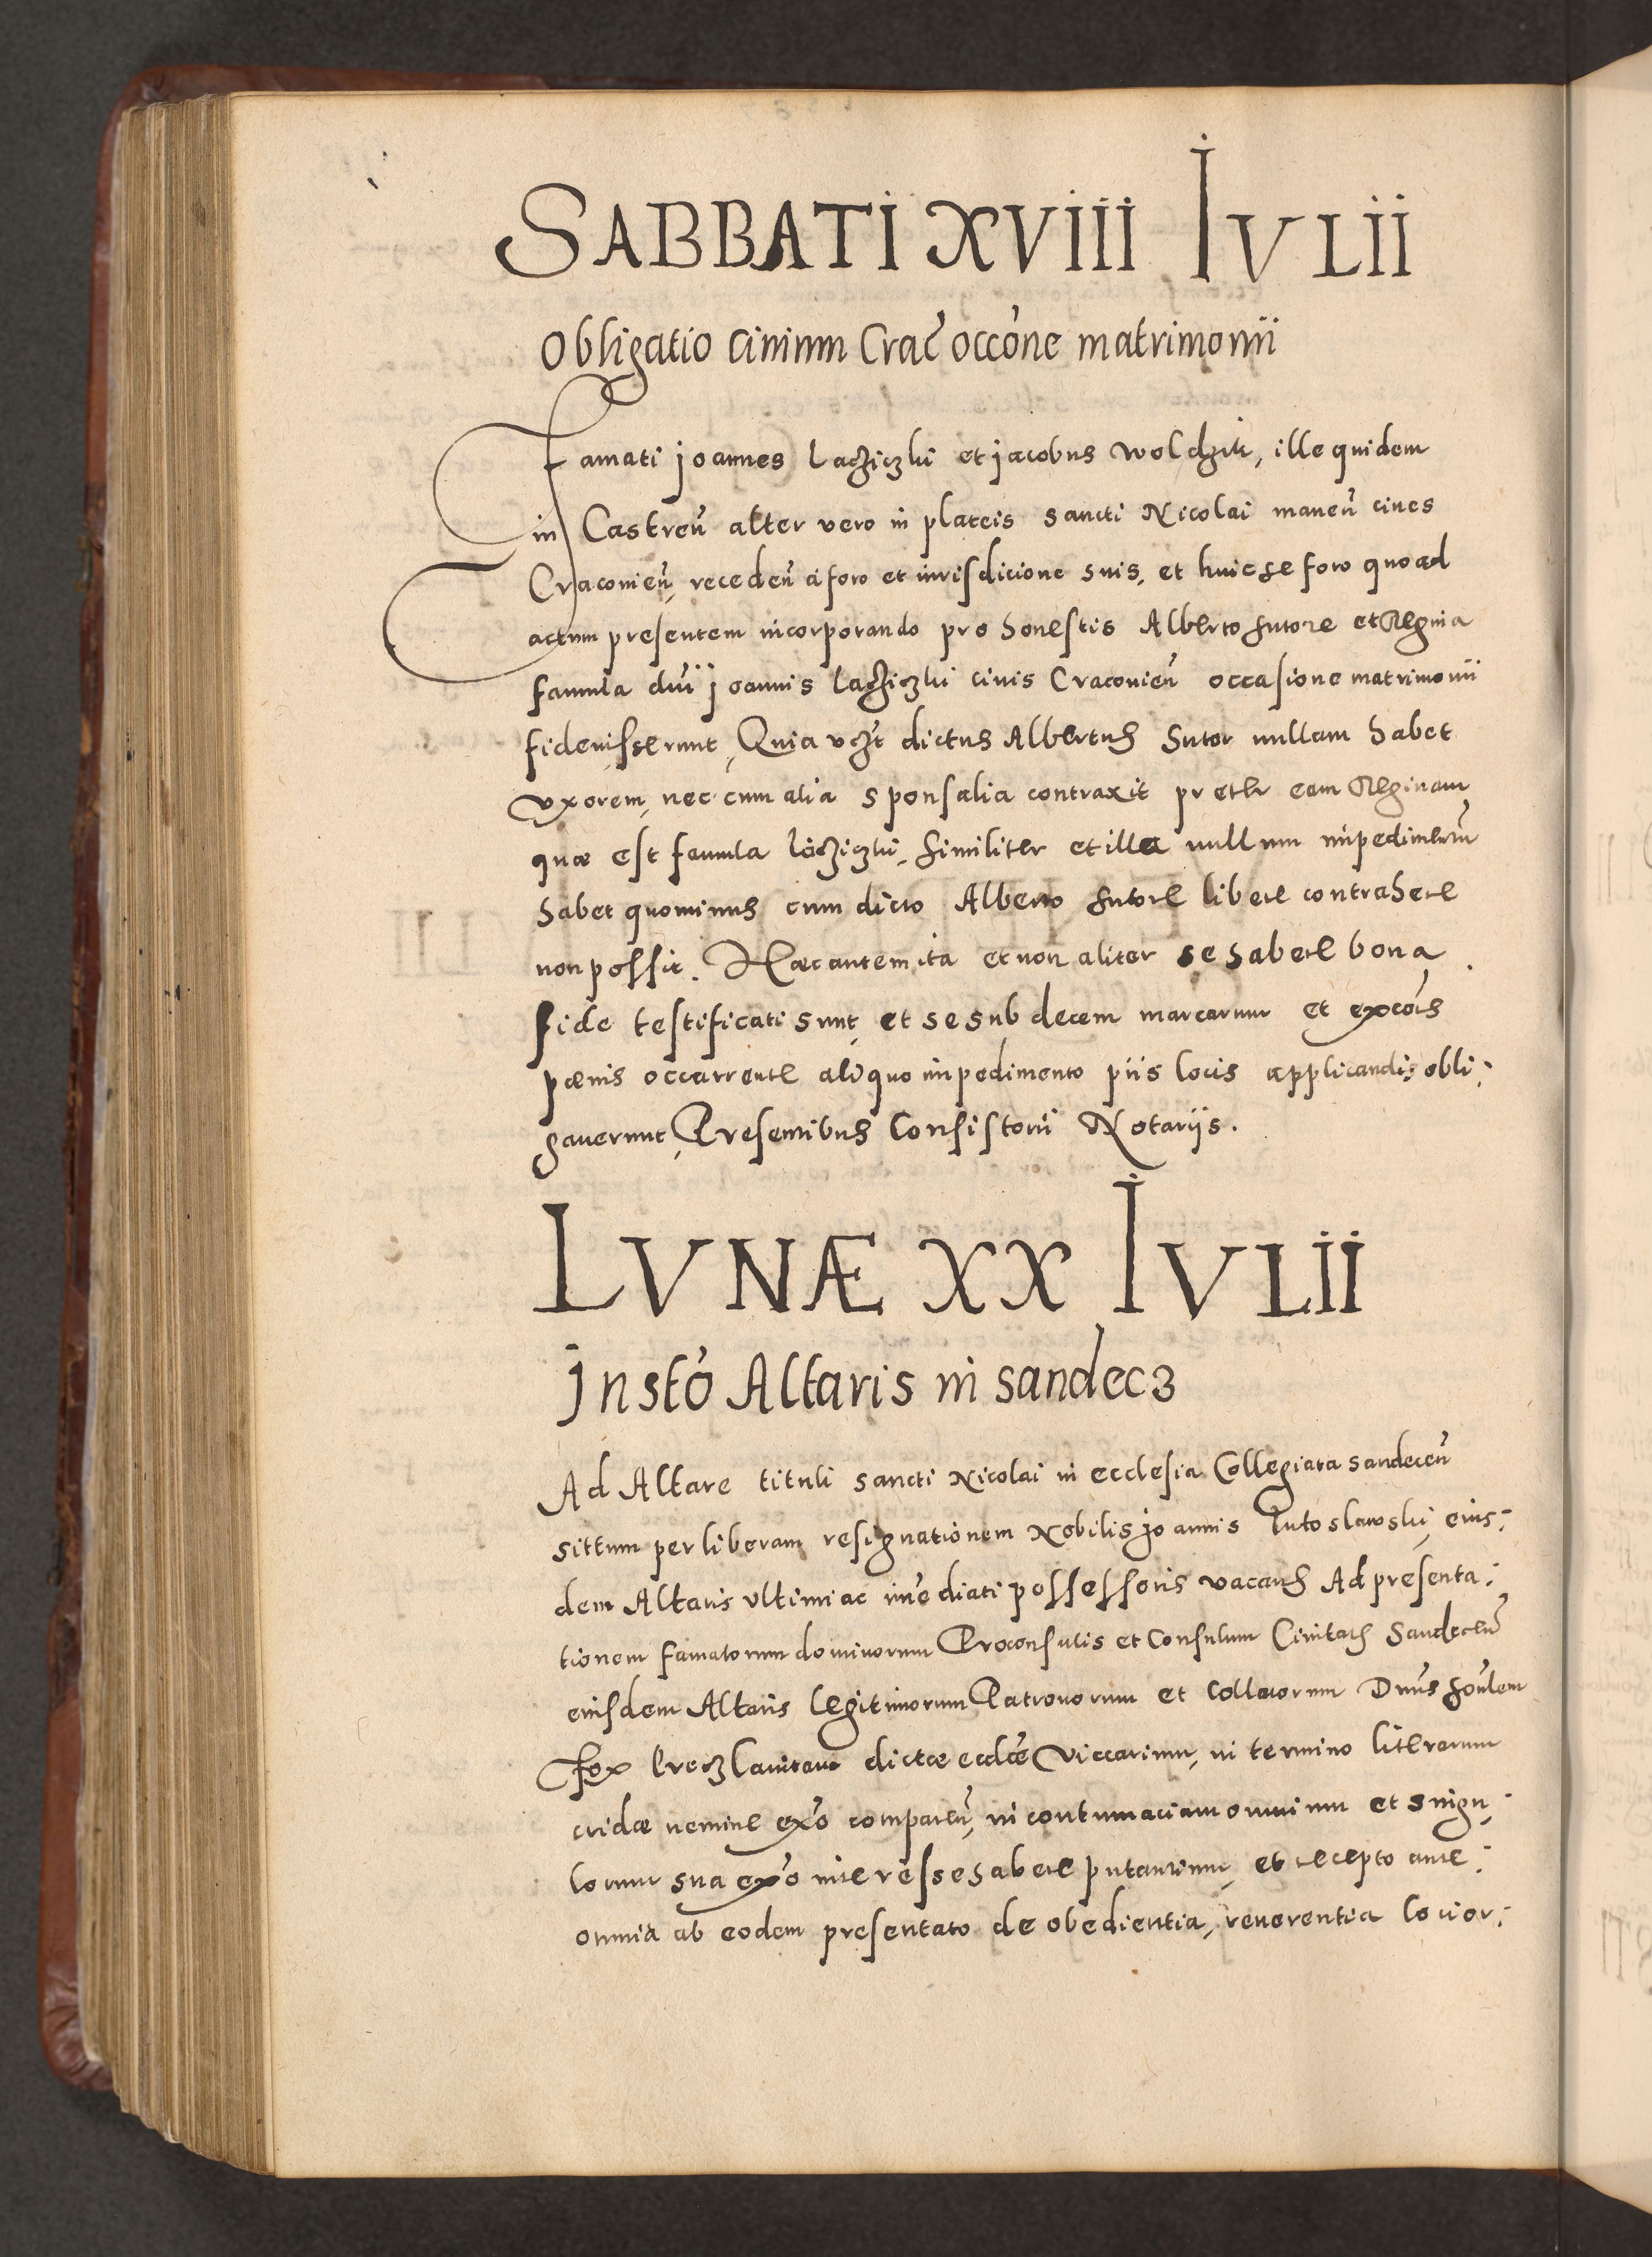 SABBATI XVIII IVLII
Obligatio civium Crac̃ occõne matrimonii
Famati joannes Lacziczki et jacobus wolchik, ille quidem
in Castreñ alter vero in plateis sancti Nicolai maneñ cives
Cracovieñ, recedeñ a foro et jurisdicione suis, et huic se foro quoad
actum presentem incorporando pro honestis Alberto sutore et Regina
famula dñi joannis Lacziczki civis Cracovieñ occasione matrimonii
fideiusserunt, Quia vczt dictus Albertus Sutor nullam habet
vxorem, nec cum alia sponsalia contraxit preter eam Reginam
quæ est famula Lacziczki, similiter et illa nullum impedimentũ
habet quominus cum dicto Alberto sutore libere contrahere
non possit. Hæc autem ita et non aliter se habere bona
fide testificati sunt, et se sub decem marcarum et excõis
pænis occurrente aliquo impedimento piis locis applicandis obli:
gaverunt, Presentibus Consistorii Notariis.
LVNÆ XX IVLII
jnstõ Altaris in sandecz
Ad Altare tituli sancti Nicolai in ecclesia Collegiata sandeceñ
situm per liberam resignationem Nobilis joannis Lutoslawski, eius:
dem Altaris vltimi ac im̃ediati possessoris vacans Ad presenta:
tionem famatorum dominorum Proconsulis et Consulum Civitatis Sandeceñ
eiusdem Altaris legitimorum Patronorum et Collatorum Dñus hoñlem
dictæ ecclẽ Viccarium, in termino literarum
cridæ nemine exõ compareñ, in contumaciam omnium et singu:
lorum sua exõ interesse habere putantium, et recepto ante:
omnia ab eodem presentato de obedientia, reverentia locior: